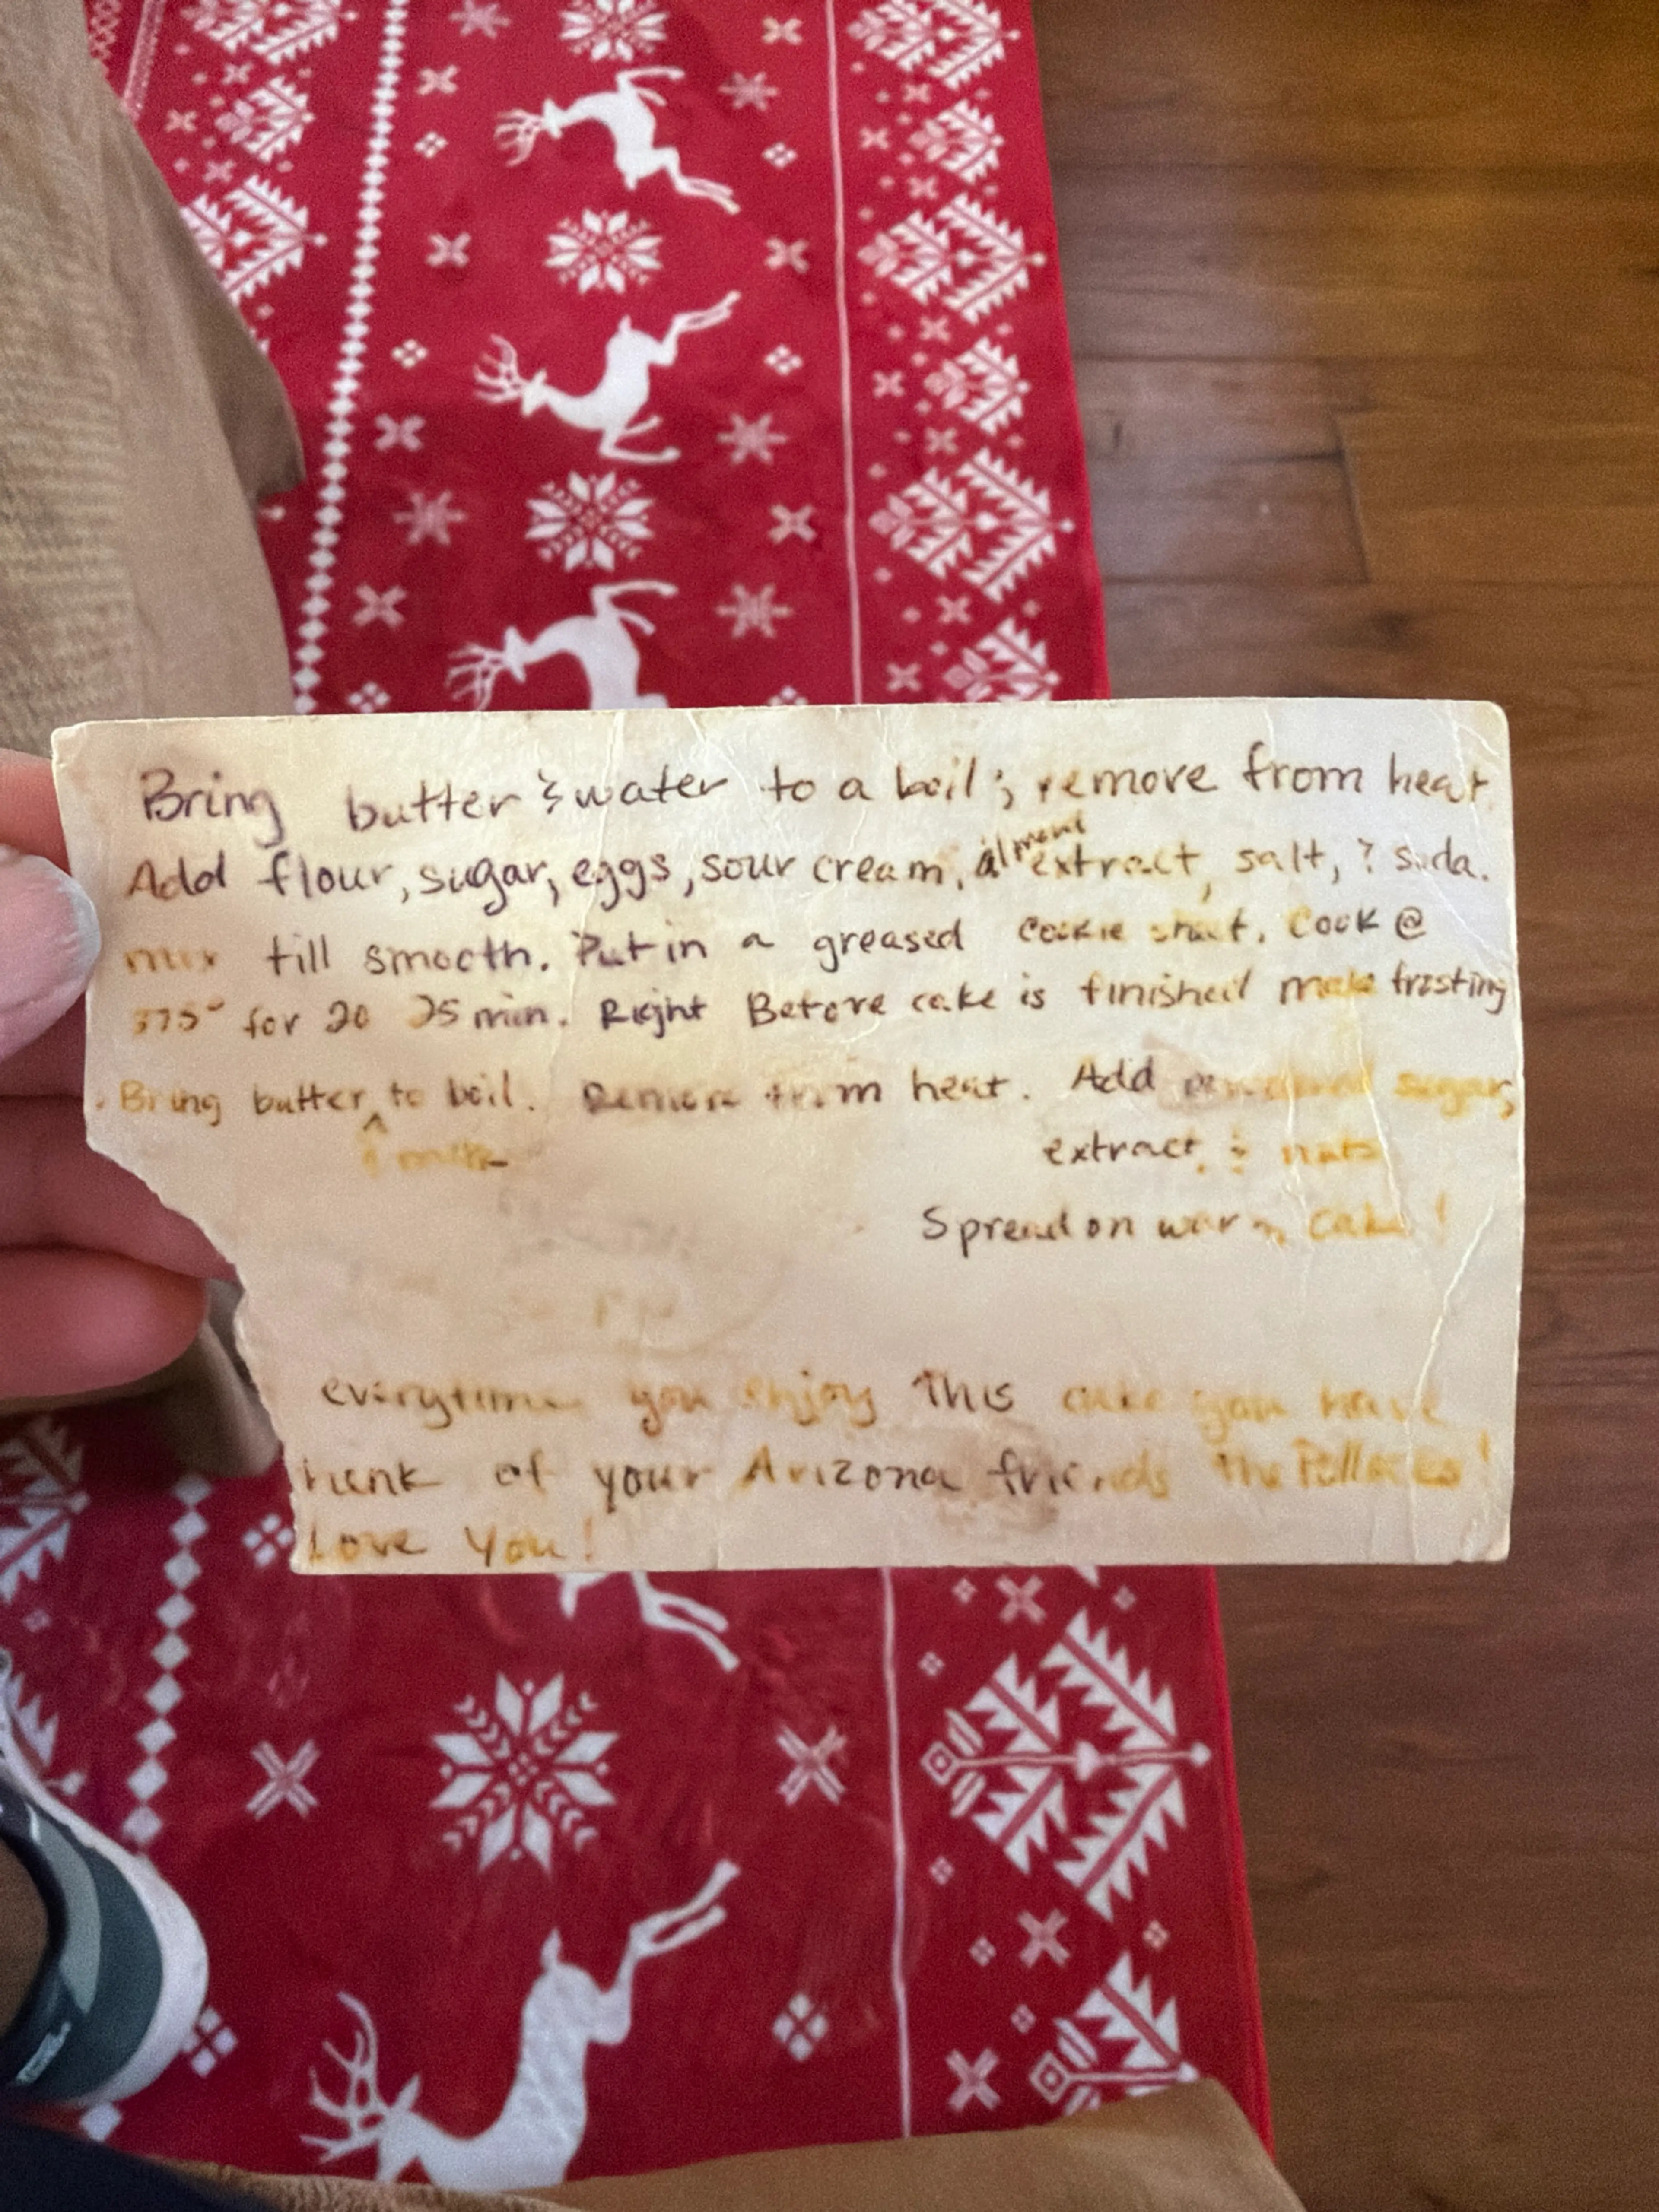 Bring butter & water to a boil; remove from heat.
Add flour, sugar, eggs, sour cream, almond extract, salt, & soda.
mix till smooth. Put in a greased cookie sheet. Cook @
375° for 20 25 min. Right Before cake is finished make frosting
Bring butter ^ to boil. Remove from heat. Add powdered sugar,
& milk
extract, & nuts
Spread on warm cake!
everytime you enjoy This cake you have
think of your Arizona friends The
Love You!